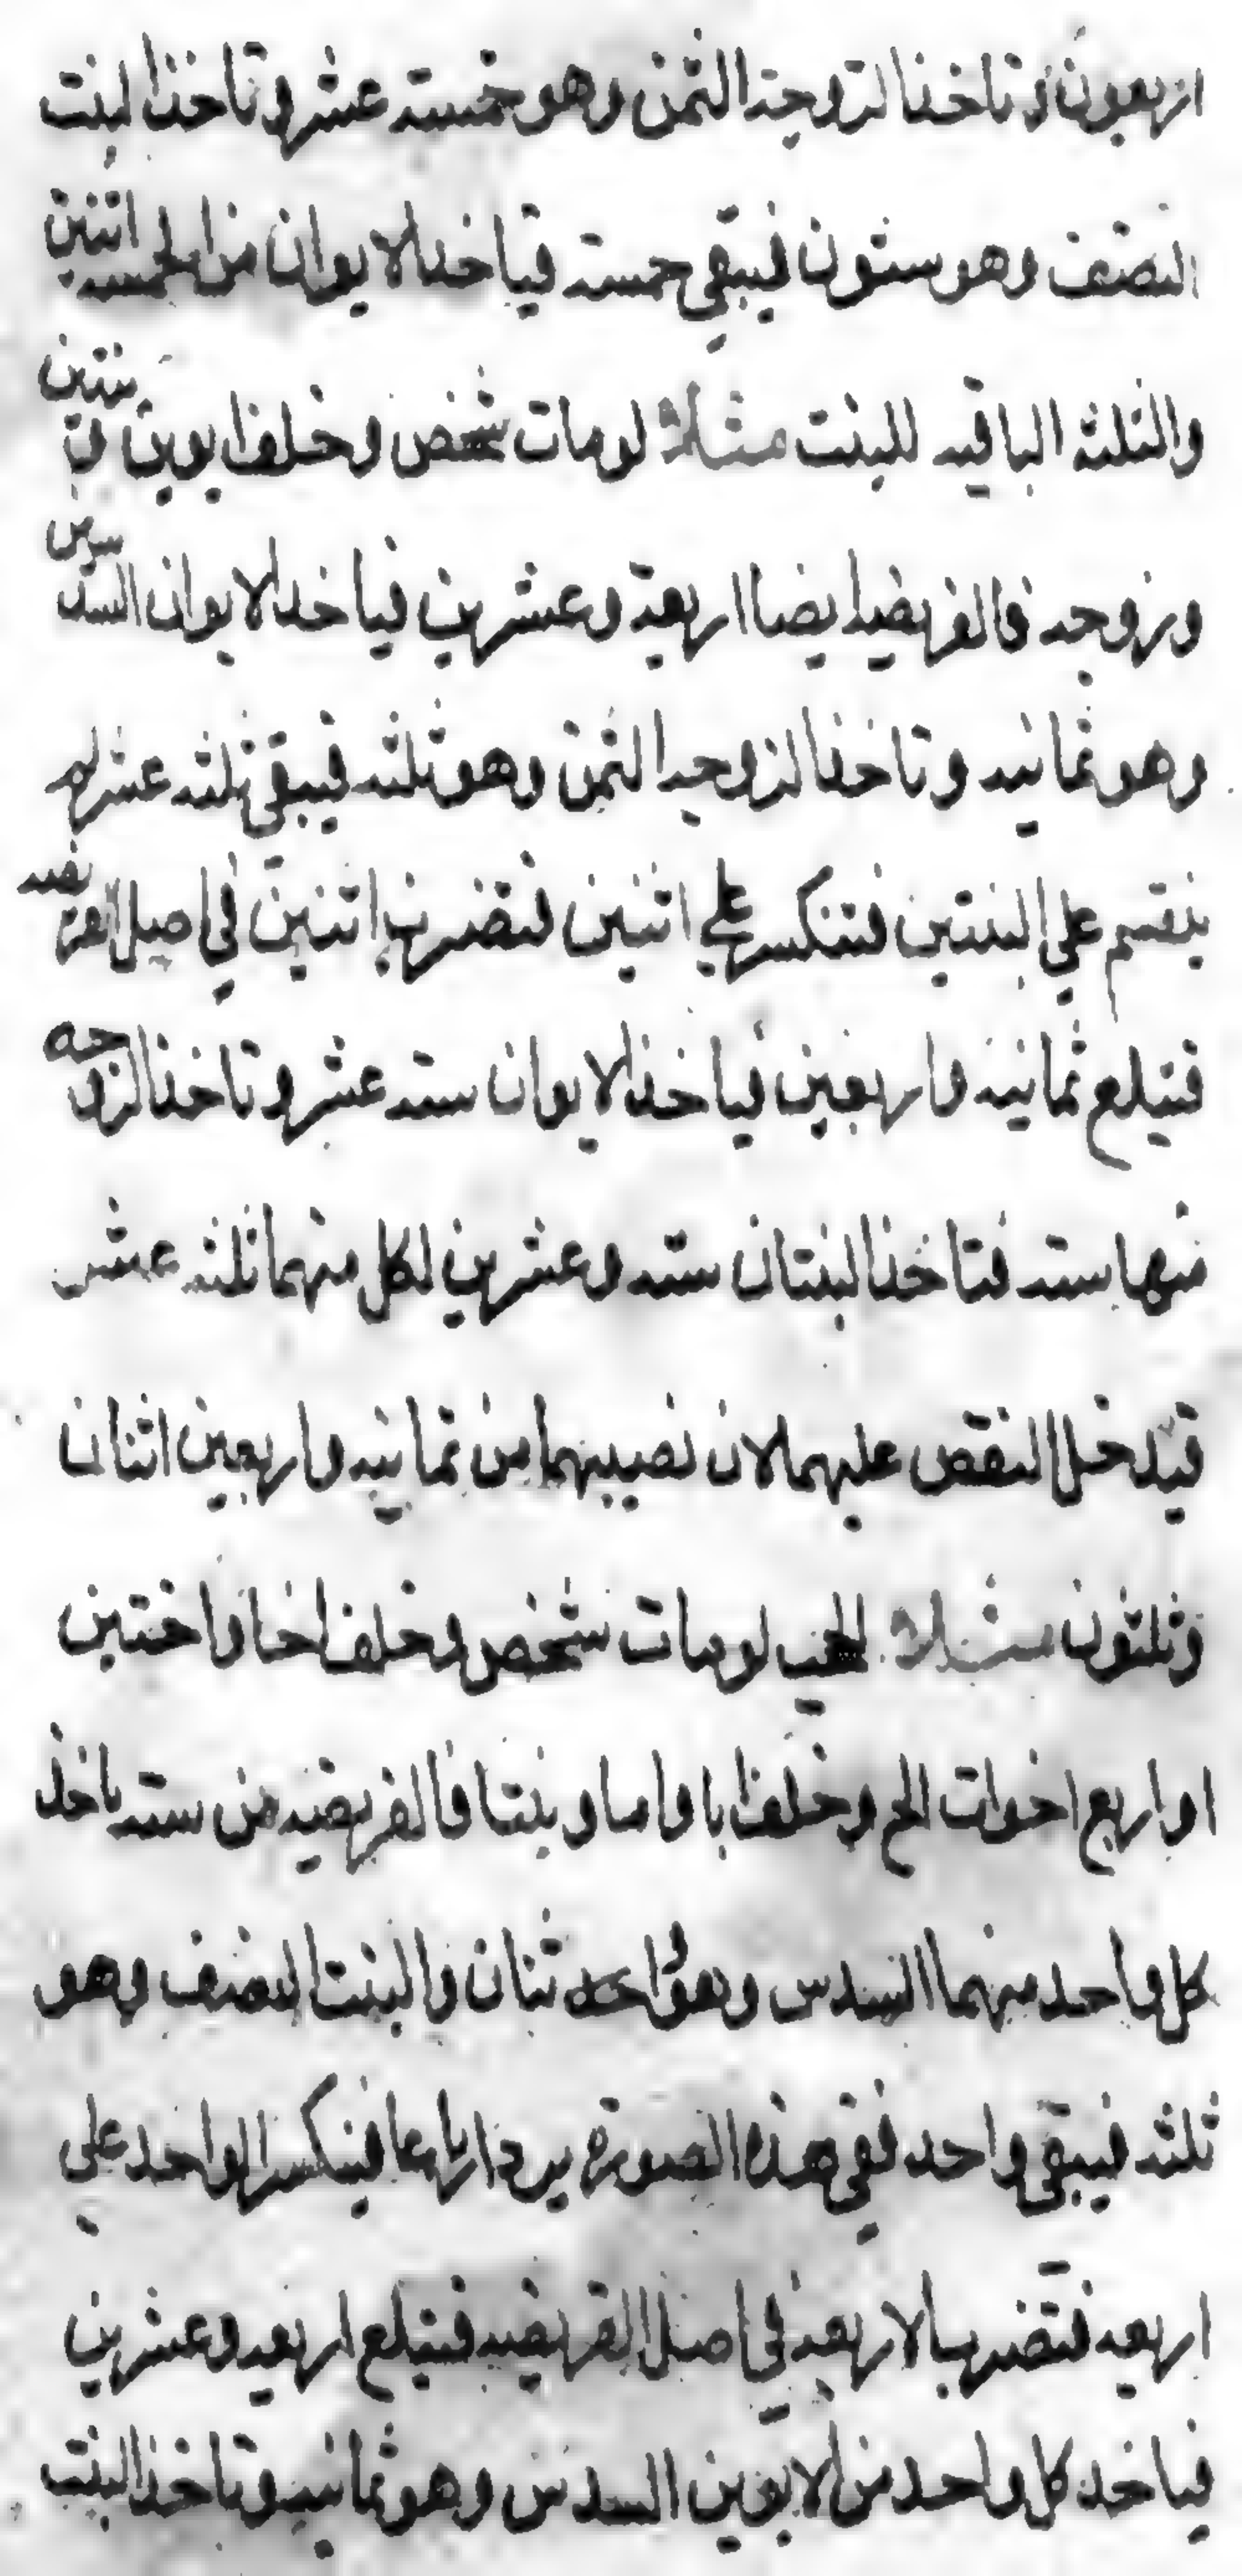 اربعون وتاخذ الزوجة الثمن وهو خمسة عشر وتاخذ البنت
النصف وهو ستون فيبقي خمسة فياخذ الابوان من الخمسه اثنين
والثلثة الباقيه للبنت مثلاً لو مات شخص وخلف ابوين وبنتين
وزوجه فالفريضة ايضا اربعة وعشرين فياخد الابوان السدسين
وهو ثمانيه وتاخذ الزوجه الثمن وهو ثلثه فيبقي ثلثه عشر لم
ينقسم علي البنتين فتنكسر علي اثنين فتضرب اثنين في اصل الفريضه
فتبلع ثمانيه واربعين فياخذ الابوان سته عشر وتاخذ الزوجه
منها سته فتاخذ البنتان سته وعشرين لكل منهما ثلثه عشر
فيدخل النقص عليهما لان نصيبهما من ثمانيه واربعين اثنان
وثلثون مثلاً للحجب لو مات شخص وخلف اخا واختين
او اربع اخوات الخ وخلف ابا واما وبنتا فالفريضيه من سته ياخذ
كل واحد منهما السدس وهو واحد ثنان والبنت النصف وهو
ثلثه فيبقي واحد ففي هذه الصورة يرد ارباعا فينكسر الواحد علي
اربعه فتضرب الاربعه في اصل الفريضيه فتبلع اربعه وعشرين
فياخد كل واحد من الابوين السدس وهو ثمانيه وتاخذ البنت